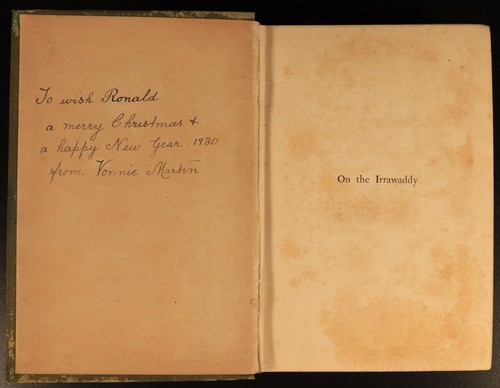 To wish Ronald
a merry Christmas &
a happy New Year. 1930
from Vonnie Martin
On the Irrawaddy